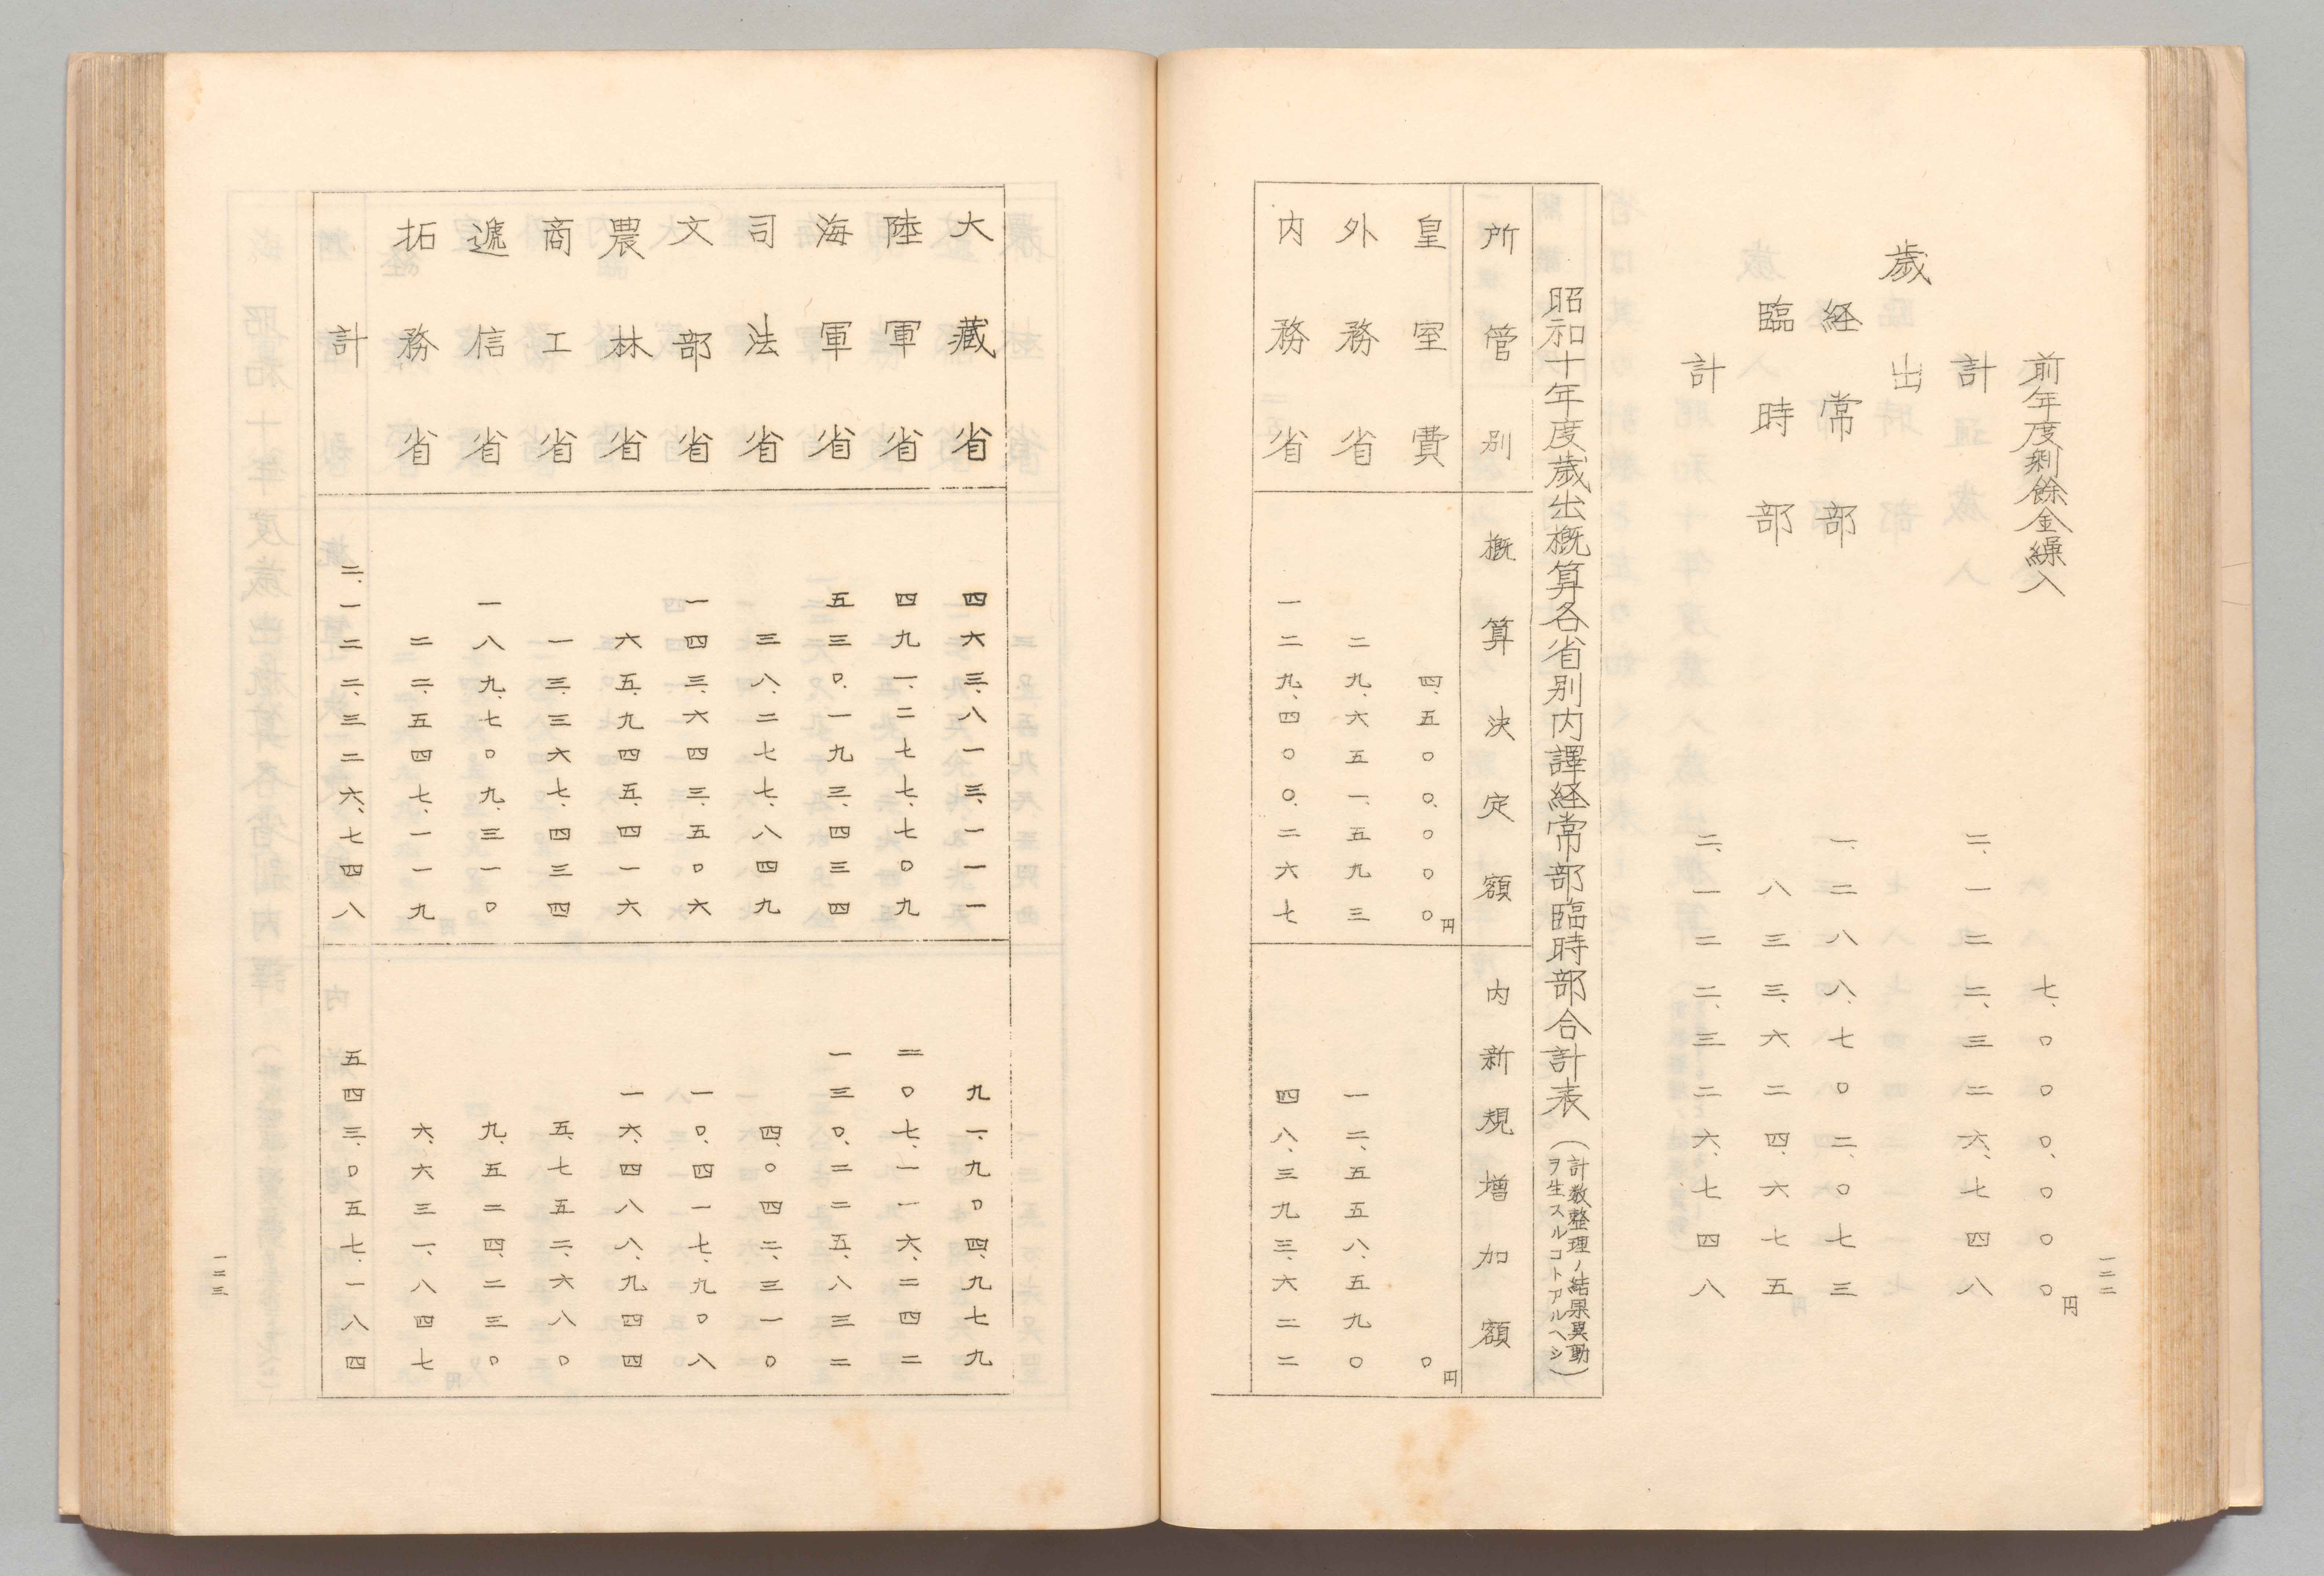 一二二
前年度剰餘金繰入 七、〇〇〇、〇〇〇円
計 二、一二二、三二六、七四八
歳出
経常部 一、二八八、七〇二、〇七三
臨時部 八三三、六二四、六七五
計 二、一二二、三二六、七四八
昭和十年度歳出概算各省別内譯経常部臨時部合計表(計数整理ノ結果異動
ヲ生スルコトアルヘシ)
所管別 概算決定額 内新規増加額
皇室費 四、五〇〇、〇〇〇円 〇円
外務省 二九、六五一、五九三 一二、五五八、五九〇
内務省 一二九、四〇〇、二六七 四八、三九三、六二二
大藏省 四六三、八一三、一一一 九一、九〇四、九七九
陸軍省 四九一、二七七、七〇九 二〇七、一一六、二四二
海軍省 五三〇、一九三、四三四 一三〇、二二五、八三二
司法省 三八、二七七、八四九 四、〇四二、三一〇
文部省 一四三、六四三、五〇六 一〇、四一七、九〇八
農林省 六五、九四五、四一六 一六、四八八、九四四
商工省 一三、三六七、四三四 五、七五二、六八〇
遞信省 一八九、七〇九、三一〇 九、五二四、二三〇
拓務省 二二、五四七、一一九 六、六三一、八四七
計 二、一二二、三二六、七四八 五四三、〇五七、一八四
一二三